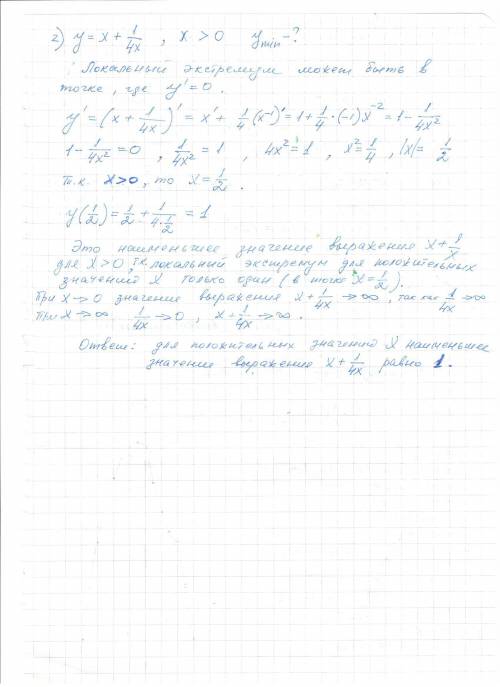 2) y = x + 1/4x , x > 0 y min - ?
Локальный экстремум может быть в
точке, где y' = 0.
y' = (x + 1/4x)' = x' + 1/4 (x⁻¹)' = 1 + 1/4 · (-1) x⁻² = 1 - 1/4x²
1 - 1/4x² = 0 , 1/4x² = 1 , 4x² = 1 , x² = 1/4 , |x| = 1/2
Т.к. x > 0, то x = 1/2 .
y(1/2) = 1/2 + 1/4·1/2 = 1
Это наименьшее значение выражения x + 1/x
для x > 0, т.к. локальный экстремум для положительных
значений x только один (в точке x = 1/2).
При x → 0 значение выражения x + 1/4x → ∞, так как 1/4x → ∞
При x → ∞ 1/4x → 0 , x + 1/4x → ∞ .
Ответ: для положительных значений x наименьшее
значение выражения x + 1/4x равно 1.